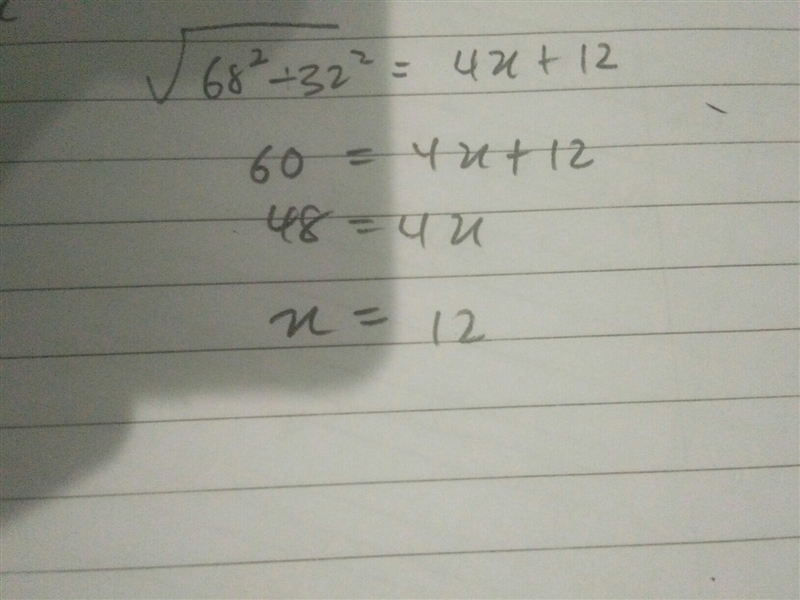 √68² - 32² = 4x + 12
60 = 4x + 12
48 = 4x
x = 12